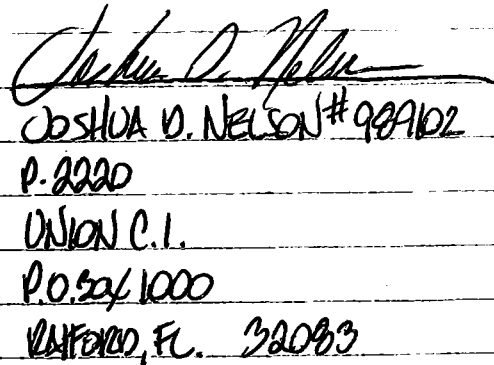 Joshua D. Nelson
JOSHUA D. NELSON #989102
P-2220
UNION C.I.
P.O. BOX 1000
RAIFORD, FL. 32083